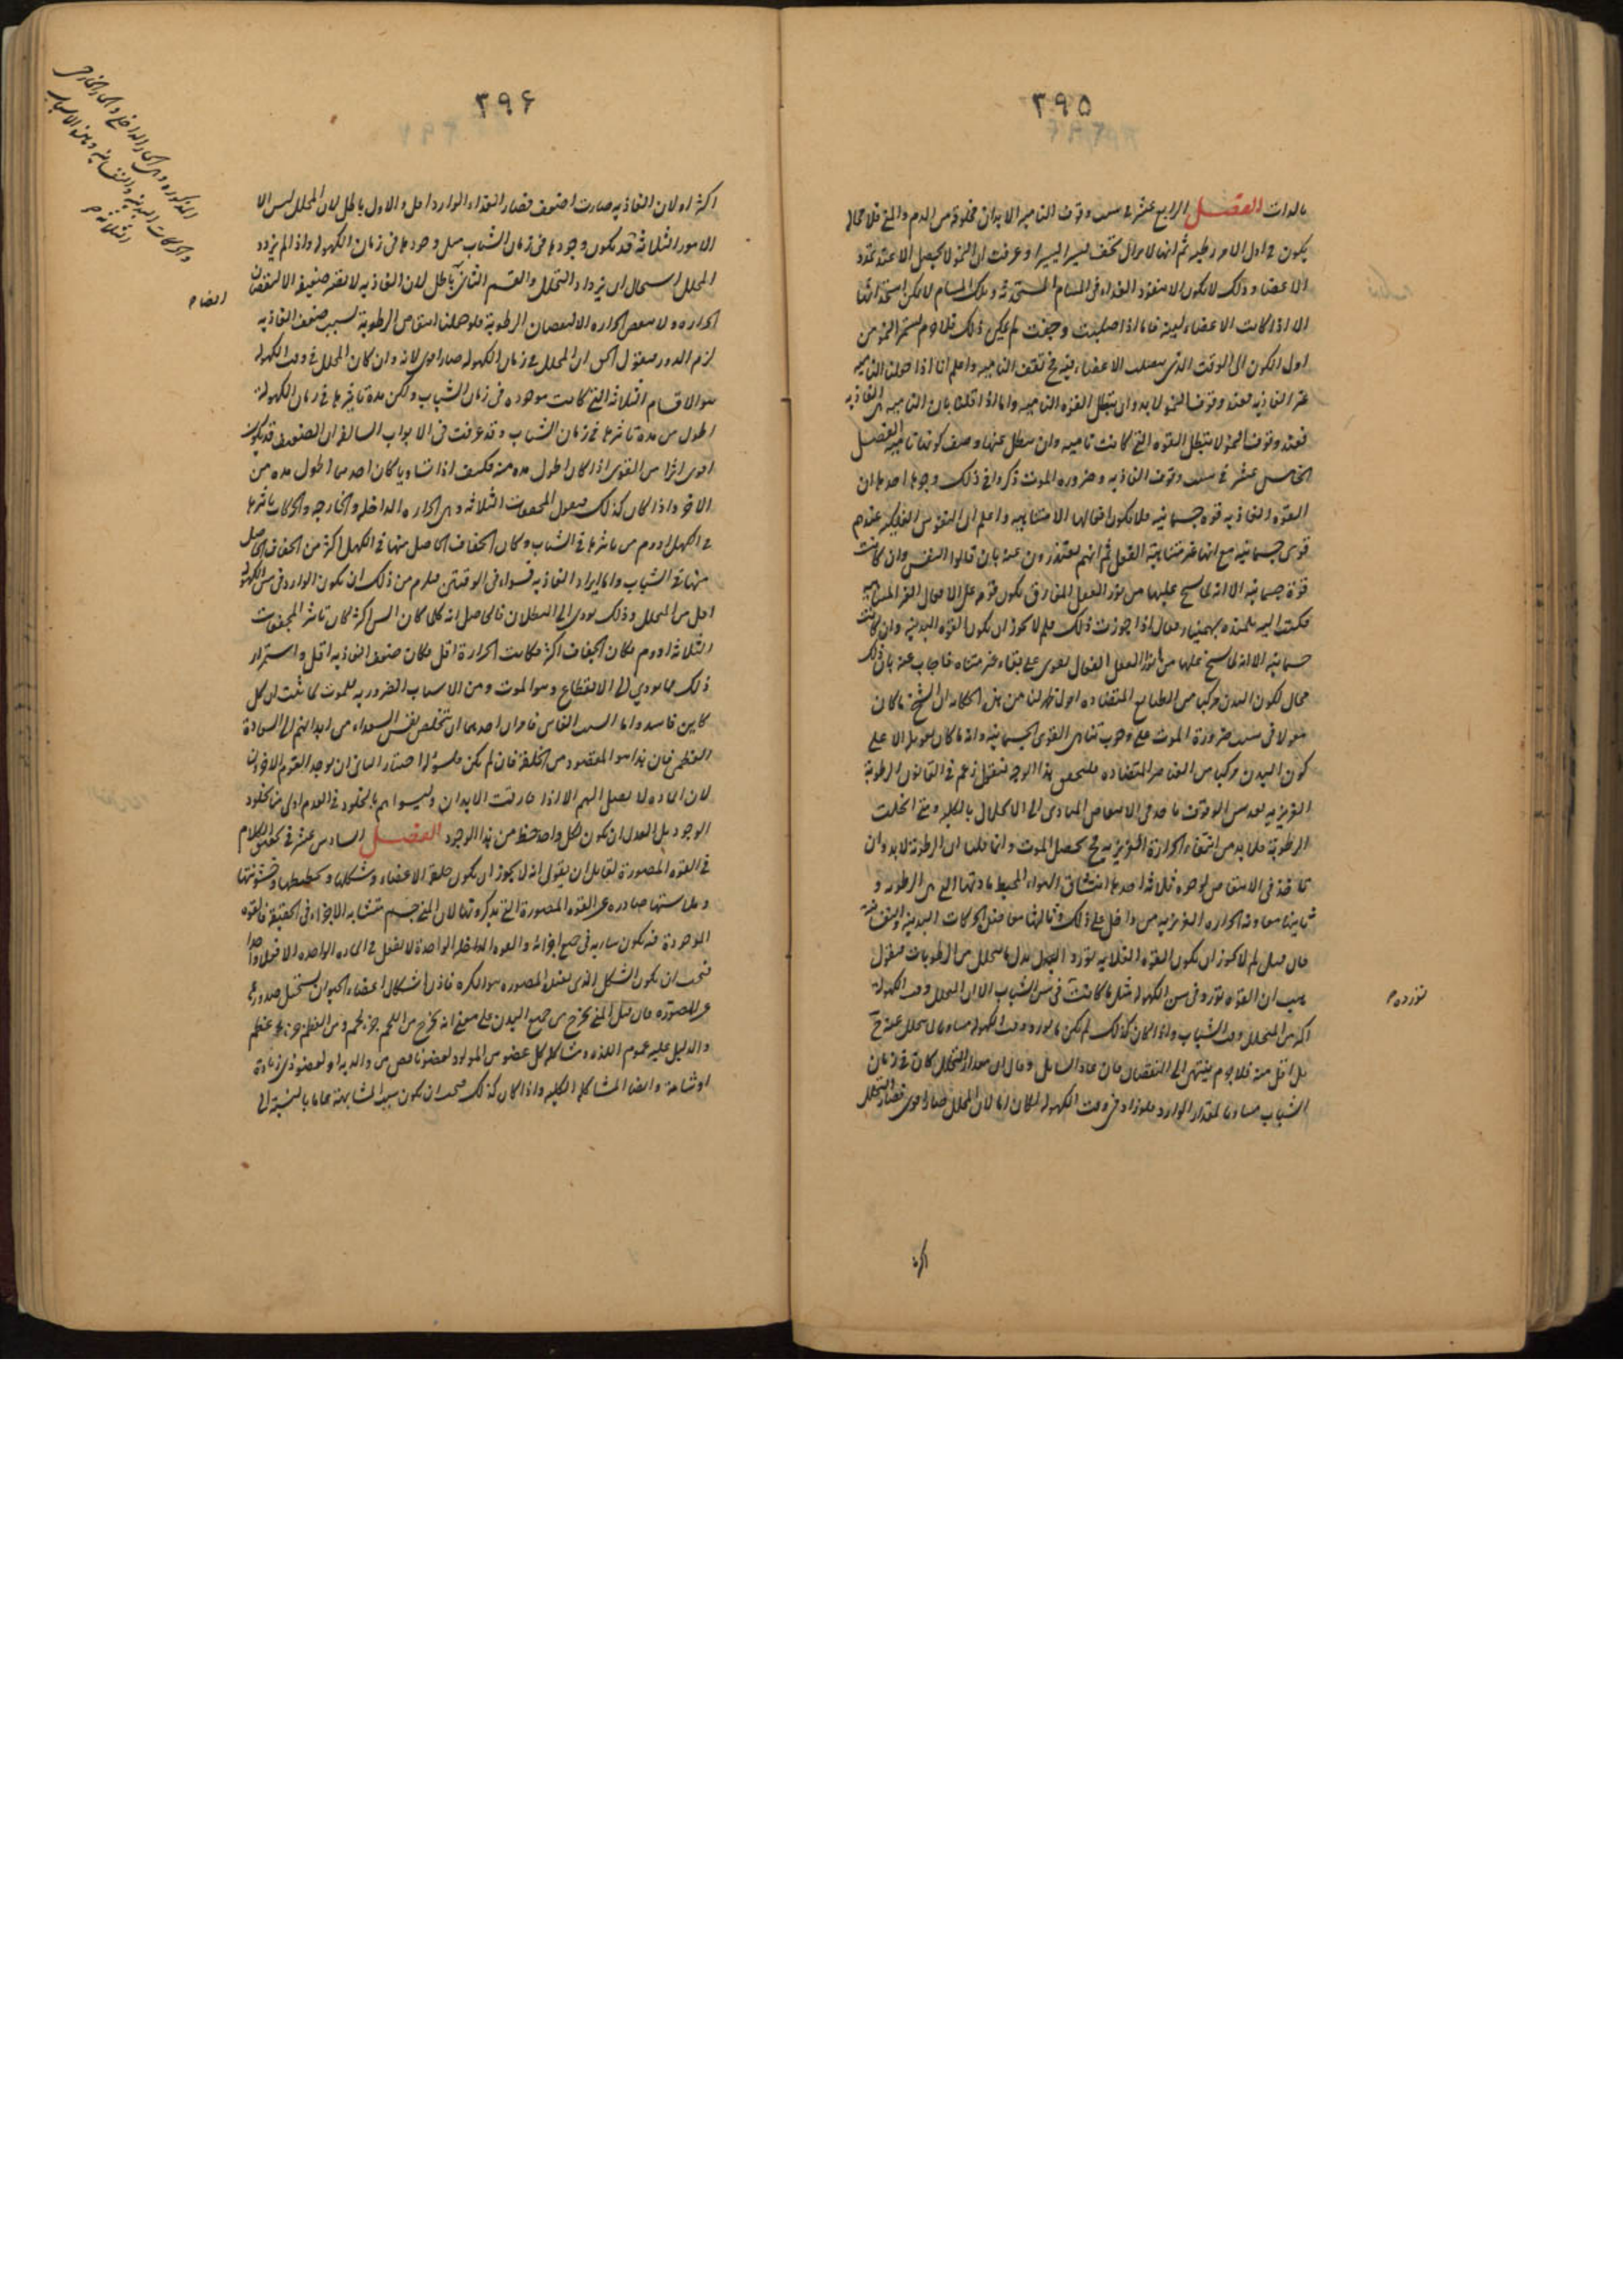 ٣٩٥
بالذات الفصل الرابع عشر في سبب وقوف النامية الابدان مخلوقة من الدم والمني فلا محالة
يكون في اول الامر رطبة ثم انها لا يزال تجف يسيرا يسيرا وعرفت ان النمو لا يحصل الا عند تمدد
الاعضاء وذلك لا يكون الا بنفوذ الغذاء في المسام المستحدثة وتلك المسام لا يمكن استحداثها
الا اذا كانت الاعضاء لينة فاما اذا صلبت وجفت لم يمكن ذلك فلا جرم يستمر النمو من
اول الكون الى الوقت الذي تصلب الاعضاء فيه فح تقف النامية واعلم انا اذا جعلنا النامية
غير الغاذية فعند وقوف النمو لا بد وان تبطل القوة النامية واما اذا قلنا بان النامية هي الغاذية
فعند وقوف النمو لا تبطل القوة التي كانت نامية وان بطل عنها وصف كونها نامية الفصل
الخامس عشر في سبب وقوف الغاذية وضرورة الموت ذكروا في ذلك وجوها احدها ان
القوة الغاذية قوة جسمانية فلا يكون افعالها الا متناهية واعلم ان النفوس الفلكية عندهم
قوى جسمانية مع انها غير متناهية الفعل ثم انهم يعتذرون عنه بان قالوا النفس وان كانت
قوة جسمانية الا انه لما يسنح عليها من نور العقل المفارق يكون قوة على الافعال الغير المتناهية
فكتب اليه تلميذه بهمنيار وقال اذا جوزت ذلك فلم لا يجوز ان يكون القوة البدنية وان كانت
جسمانية الا انه لما يسنح عليها من نور العقل الفعال تقوى على بقاء غير متناه فاجاب عنه بان ذلك
محال لكون البدن مركبا من الطبايع المتضادة اقول فظهر لنا من هذه الحكاية ان الشيخ ما كان
يعول في سبب ضرورة الموت على وجوب تناهي القوى الجسمانية وانه ما كان تعويله الا على
كون البدن مركبا من العناصر المتضادة فلنحصل هذا الوجه فنقول زعم في القانون ان الرطوبة
الغريزية بعد سن الوقوف تاخذ في الانتقاص المتادى الى الانحلال بالكلية ومتى انحلت
الرطوبة فلا بد من انتفاء الحرارة الغريزية فح يحصل الموت وانما قلنا ان الرطوبة لا بد وان
تاخذ في الانتقاص لوجوه ثلاثة احدها انتشاف الهواء المحيط مادتها التي هي الرطوبة و
ثانيها معاونة الحرارة الغريزية من داخل على ذلك وثالثها معاضدة الحركات البدنية والنفسانية
فان قيل لم لا يجوز ان يكون القوة الغاذية تورد البدل بدل ما يتحلل من الرطوبات فنقول
هب ان القوة تورد في سن الكهولة مثل ما كانت في سن الشباب الا ان المتحلل وقت الكهولة
اكثر من المتحلل وقت الشباب واذا كان كذلك لم يكن ما تورده وقت الكهولة مساويا لما يتحلل عنه ح
بل اقل منه فلا جرم ينتهي الى النقصان فان عاد السائل وقال ان مقدار التحلل كان في زمان
الشباب مساويا لمقدار الوارد فلو زاد في وقت الكهولة لكان اما لان المحلل صار اقوى فصار التحلل
اكثر
تورده
٣٩٦
اكثر او لان الغاذية صارت اضعف فصار الغذاء الوارد اقل والاول باطل لان المحلل ليس الا
الامور الثلاثة قد يكون وجودها في زمان الشباب مثل وجودها في زمان الكهولة واذا لم يزدد
المحلل استحال ان يزداد التحلل والقسم الثاني باطل لان الغاذية لا تصير ضعيفة الا لنقصان
الحرارة ولا ينقص الحرارة الا لنقصان الرطوبة فلو جعلنا انتقاص الرطوبة بسبب ضعف الغاذية
لزم الدور فنقول الحق ان المحلل في زمان الكهولة صار اقوى لانه وان كان المحلل في وقت الكهولة
هو الاقسام الثلاثة التي كانت موجودة في زمان الشباب ولكن مدة تاثيرها في زمان الكهولة
اطول من مدة تاثيرها في زمان الشباب وقد عرفت في الابواب السالفة ان الضعيف قد يكون
اقوى اثرا من القوى اذا كان اطول مدة منه فكيف اذا تساويا كان احدهما اطول مدة من
الاخر واذا كان كذلك فنقول المجففات الثلاثة وهي الحرارة الداخلة والخارجة والحركات تاثيرها
في الكهل ادوم من تاثيرها في الشباب وكان الجفاف الحاصل منها في الكهل اكثر من الجفاف الحاصل
منها في الشباب واما ايراد الغاذية فسواء في الوقتين فيلزم من ذلك ان يكون الوارد في سن الكهولة
اقل من المتحلل وذلك يودي الى البطلان فالحاصل انه كلما كان السن اكثر كان تاثير المجففات
الثلاثة ادوم فكان الجفاف اكثر فكانت الحرارة اقل فكان ضعف الغاذية اقل واستمرار
ذلك مما يودي الى الانقطاع وهو الموت ومن الاسباب الضرورية للموت لما ثبت ان كل
كاين فاسد واما السبب الغائي فامران احدهما ان تتخلص نفس السعداء من ابدانهم الى السعادة
العظمى فان هذا هو المقصود من الخلقة فان لم يكن فلسوء اختيار الثاني ان يوجد القوم الاخرون
لان المادة لا يصل اليهم الا اذا فارقت الابدان وليسوا هم بالخلود في العدم اولى منا بخلود
الوجود بل العدل ان يكون لكل واحد حظ من هذا الوجود الفصل السادس عشر في تحقيق الكلام
في القوة المصورة لقايل ان يقول انه لا يجوز ان يكون خلق الاعضاء وشكلها وتخطيطها وخشونتها
وملاستها صادرة عن القوة المصورة التي يذكرونها لان المني جسم متشابه الاجزاء في الحقيقة فالقوة
الموجودة فيه يكون سارية في جميع اجزائه والقوة الواحدة لا تفعل في المادة الواحدة الا فعلا واحدا
فيجب ان يكون الشكل الذي يفعله المصورة هو الكرة فاذن اشكال اعضاء الحيوان يستحيل صدورها
عن المصورة فان قيل المني يخرج من جميع البدن على معنى انه يخرج من اللحم جزء لحم ومن العظم جزء عظم
والدليل عليه عموم اللذة ومشاكلة كل عضو من المولود لعضو ناقص من والديه او لعضو ذي زيادة
او شامة وايضا المشاكلة الكلية واذا كان كذلك فيجب ان يكون سبب المشابهة عاما بالنسبة الى
المذكورة وهي الحار الداخلي والحار الخارجي
والحركات البدنية والنفسانية وهذه الاسباب
الثلاثة
ايضا